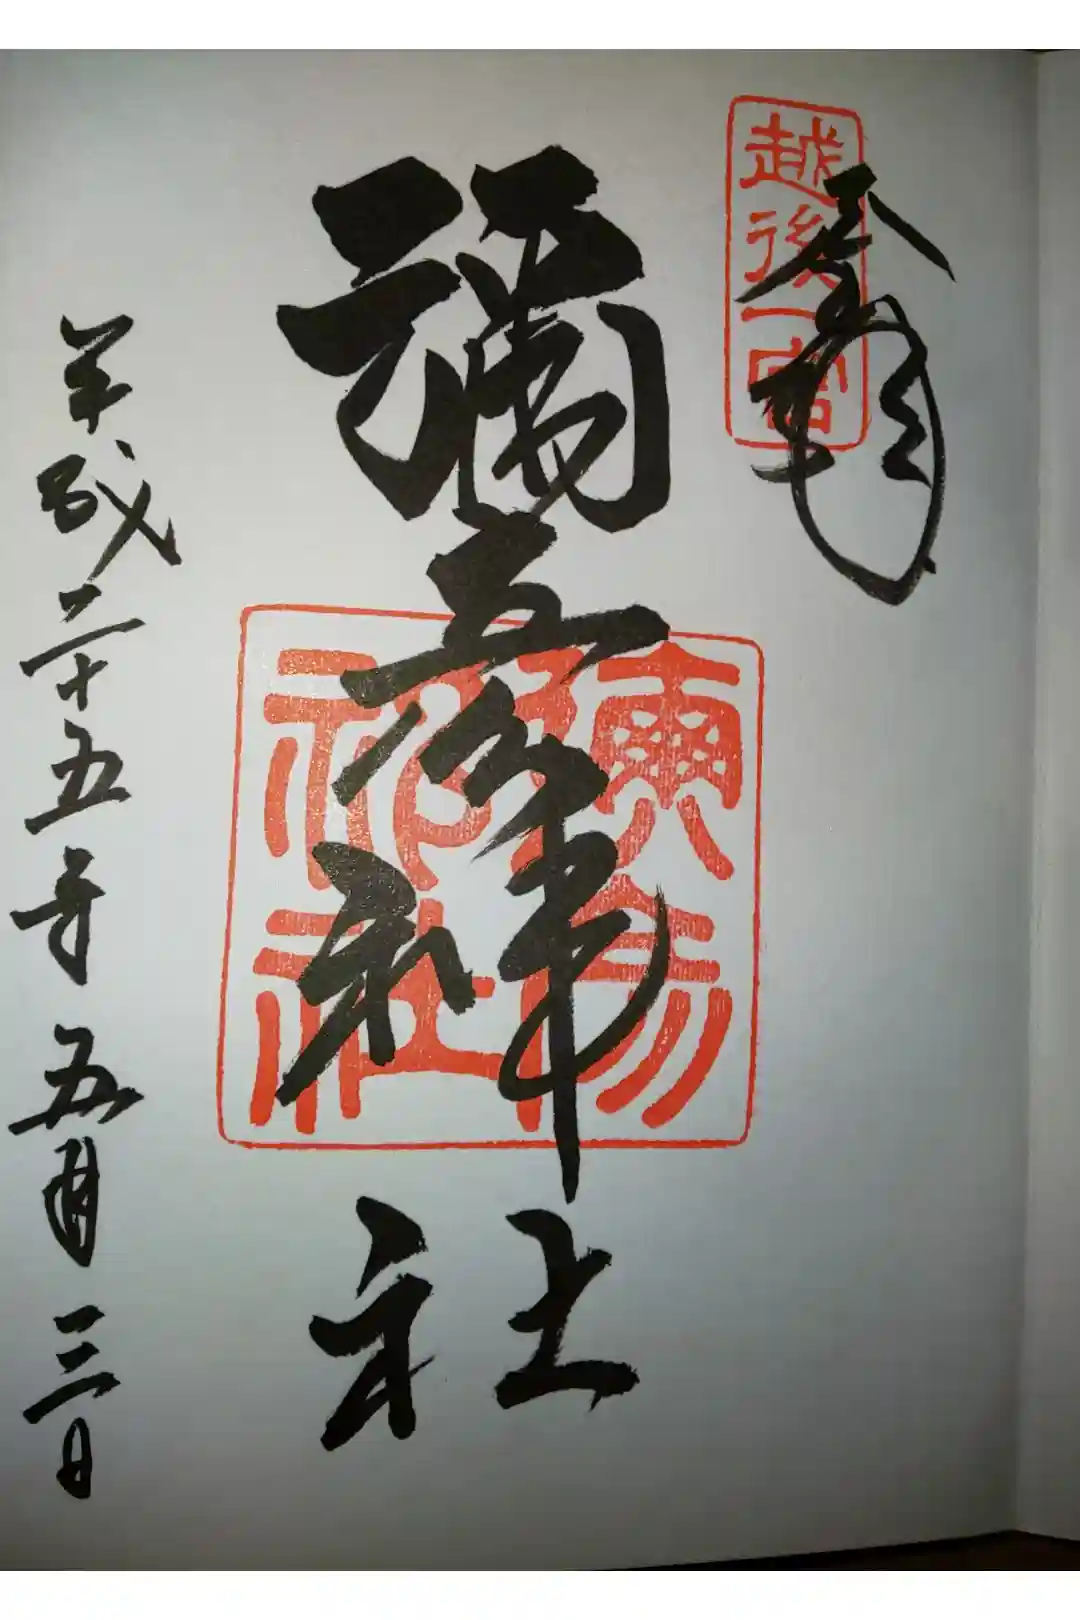 越後一宮
奉拝
彌彦神社
彌彦神社
平成二十五年五月三日